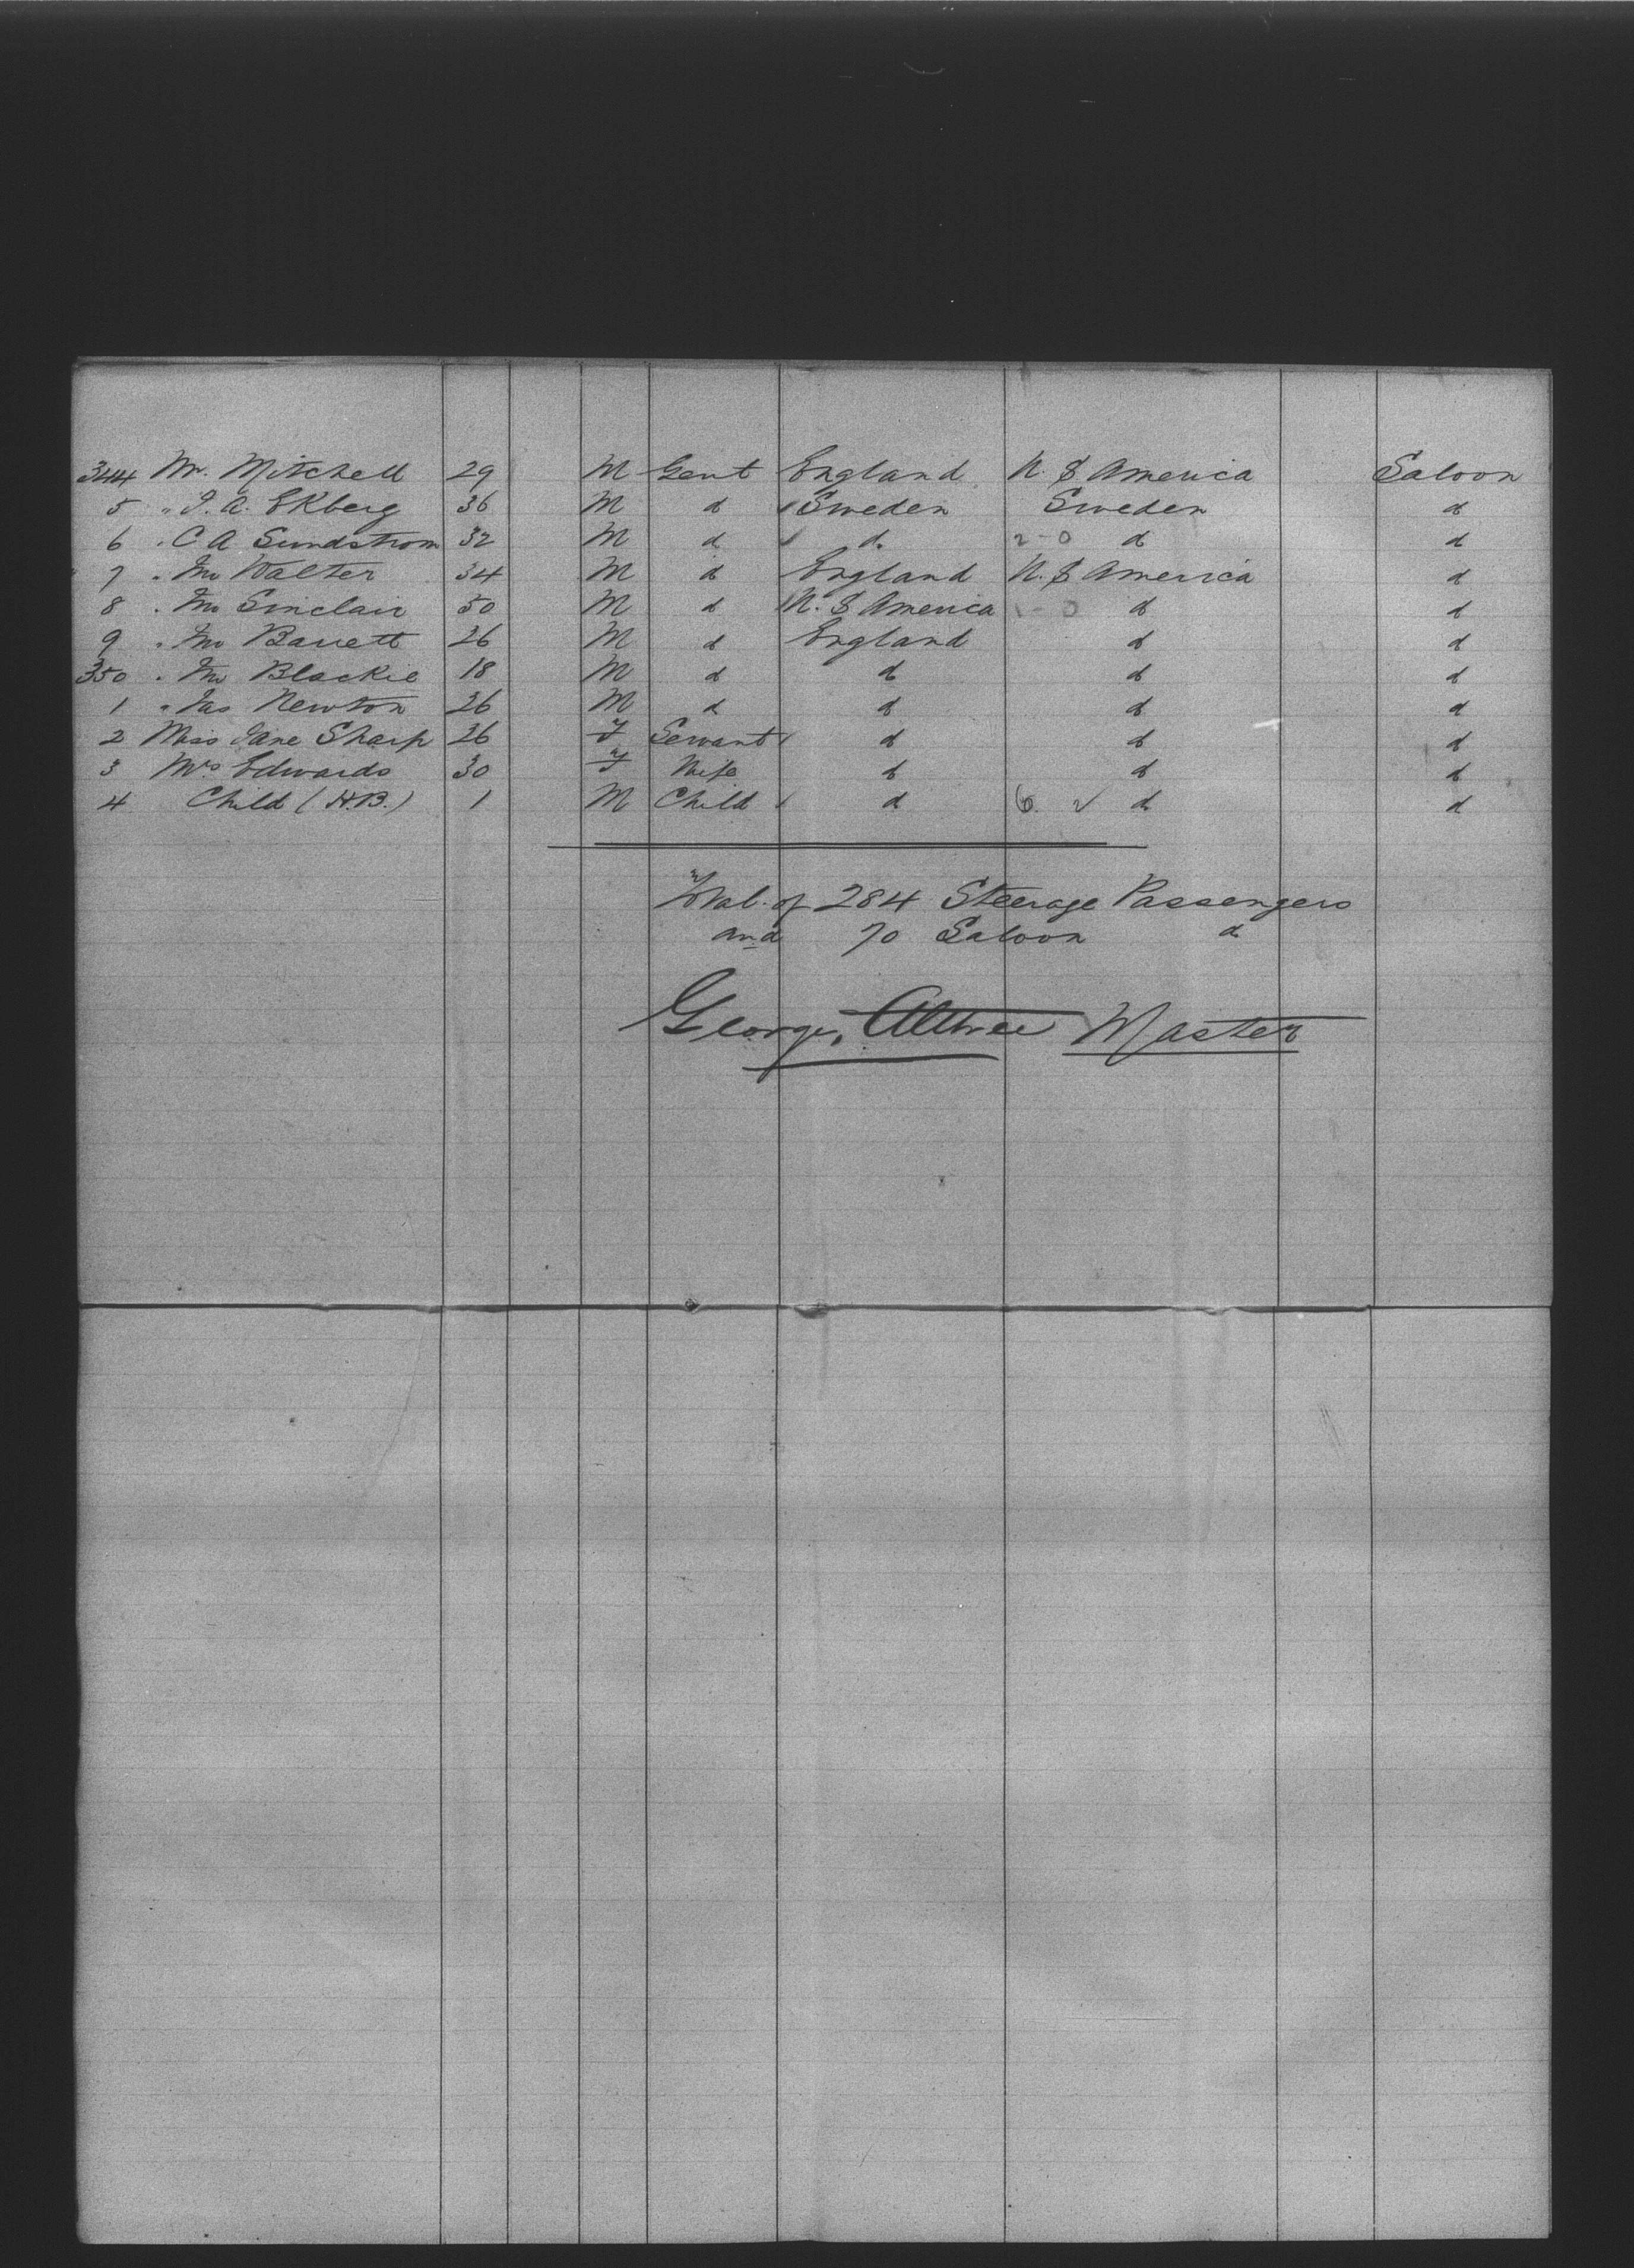 344 Mr. Mitchell 29 M Gent England N. S America Saloon
5 " J. A. Ekberg 36 M d Sweden Sweden d
6 " C A Sundstrom 32 M d d 2-0 d d
7 " Jno Walter 34 M d England N. S America d
8 " Jno Sinclair 50 M d N. S America d d
9 " Jno Barrett 26 M d England d d
350 " Jno Blackie 18 M d d d d
1 " Jas Newton 26 M d d d d
2 Miss Jane Sharp 26 F Servant d d d
3 Mrs Edwards 30 F Wife d d d
4 Child (H.B.) 1 M Child d 6 d d
Total of 284 Steerage Passengers
and 70 Saloon d
George Master